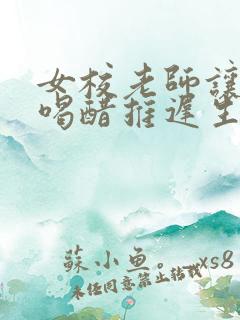 女校老師讓
喝醋推遲生
蘇小魚。—xs8
未经同意禁止转载